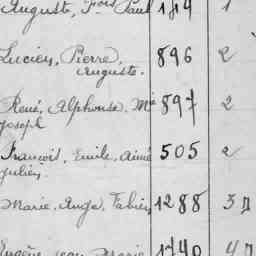 Auguste, Paul 1
Lucien, Pierre, 896 2
Auguste.
René, Alphonse, Mie 897 2
Joseph
François, Emile, Aimé 505 2
Julien.
Marie, Ange, Fabien, 1288 3
Eugène, Jean Marie 1740 4